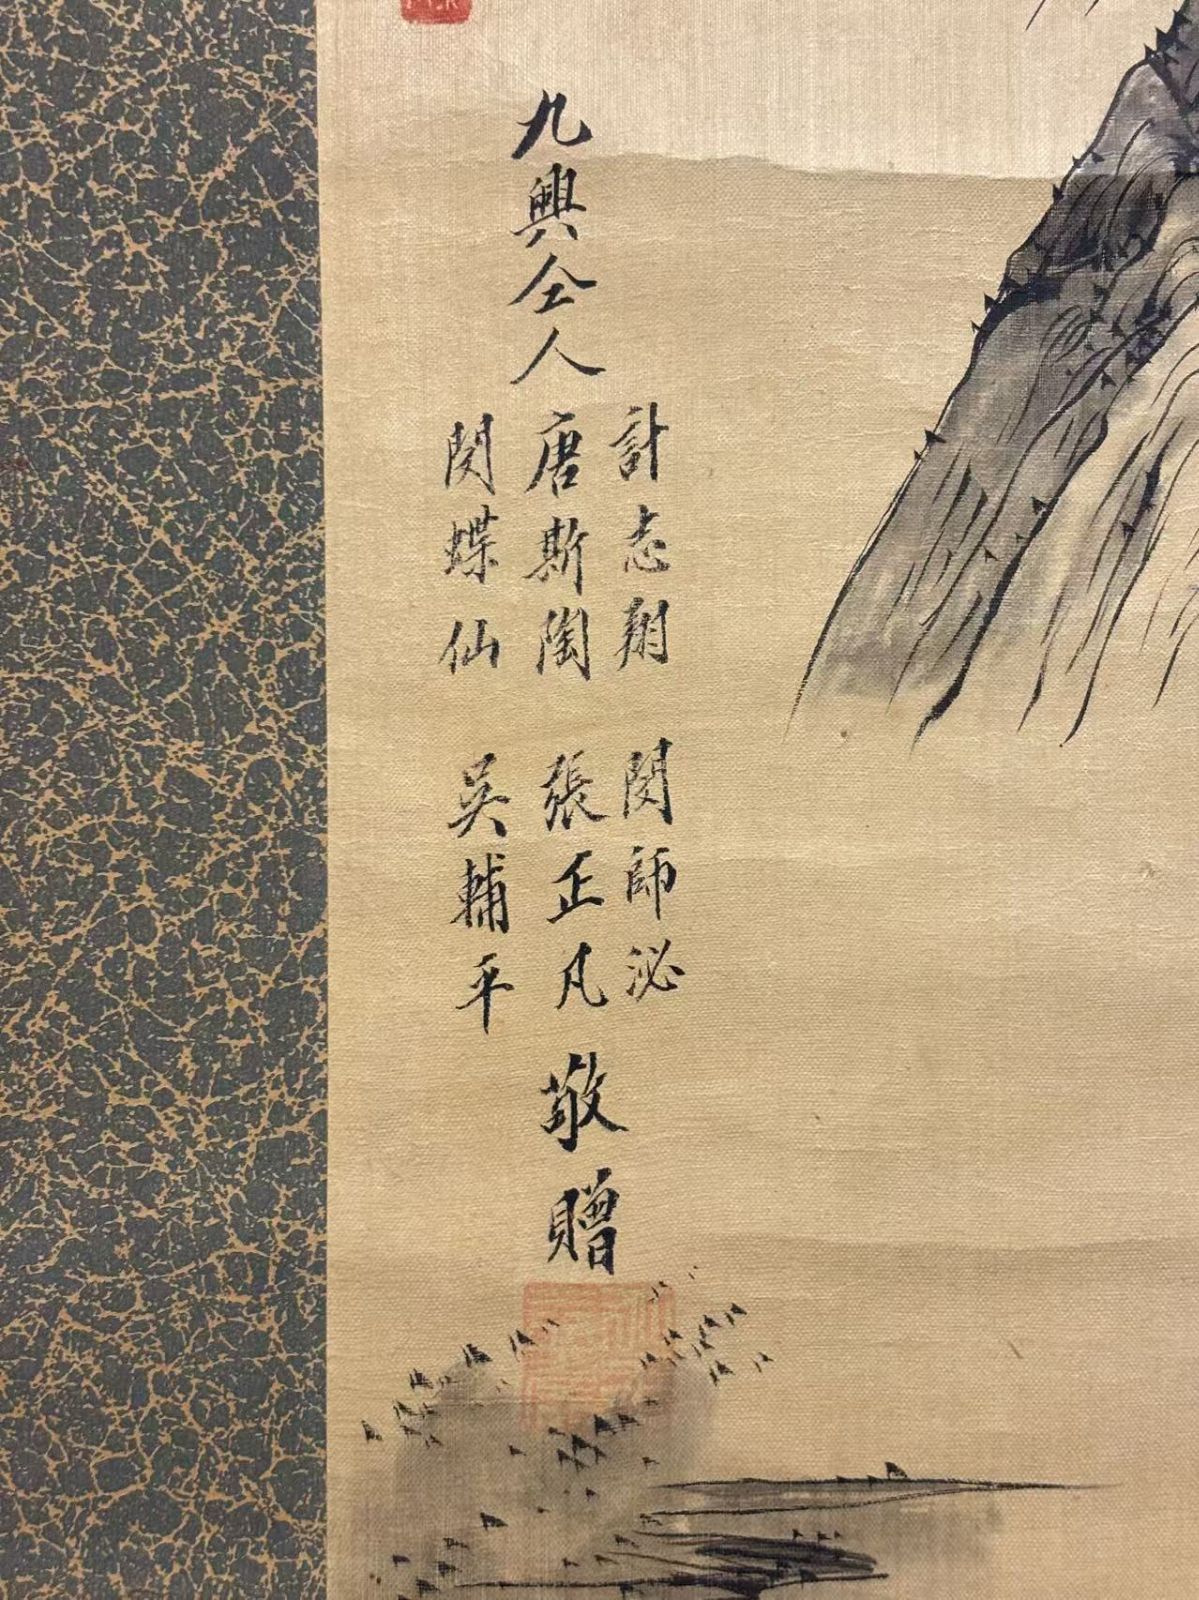 九興仝人
計志翔 閔師泌
唐斯陶 張正凡
閔蝶仙 吳輔平
敬贈